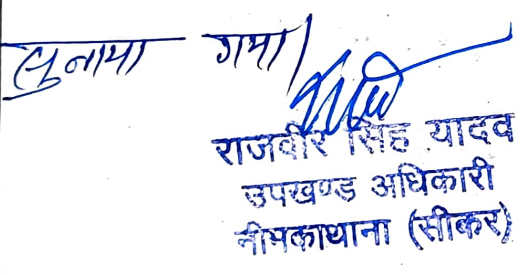 सुनाया गया।
राजवीर सिंह यादव
उपखण्ड अधिकारी
नीमकाथाना (सीकर)